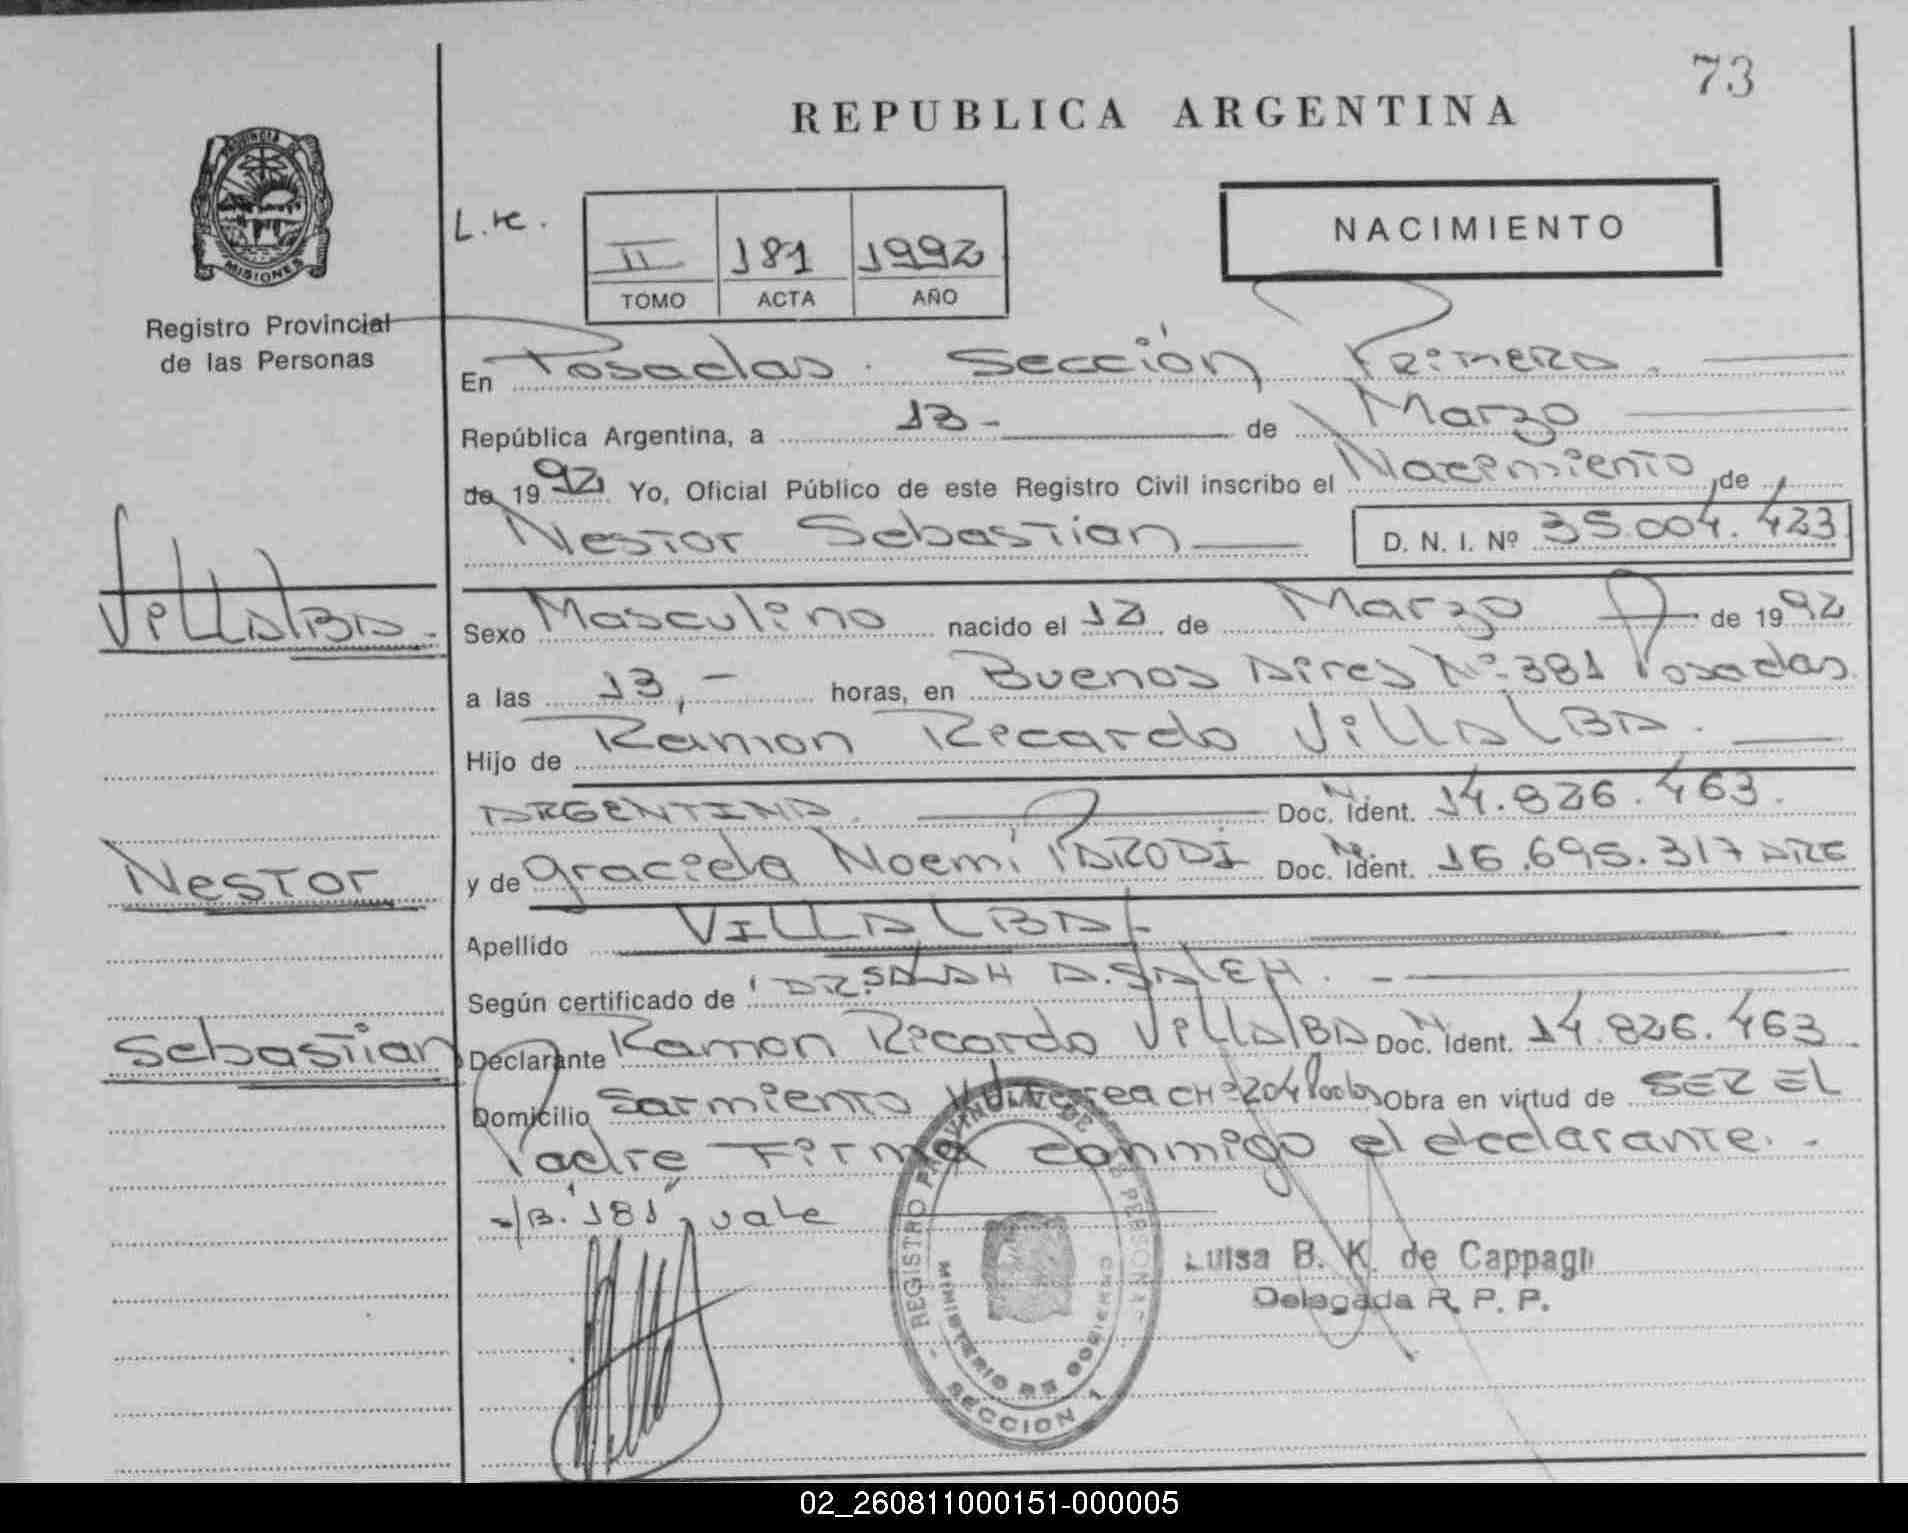 73
REPUBLICA ARGENTINA
PROVINCIA DE
MISIONES
Registro Provincial
de las Personas
NACIMIENTO
II 181 1992
TOMO ACTA AÑO
En Posadas. Sección Primera.
República Argentina, a 13- de Marzo
de 1992 Yo, Oficial Público de este Registro Civil inscribo el Nacimiento de
Nestor Sebastian D. N. I. Nº 35.004.423
VillalBA.
Sexo Masculino nacido el 12 de Marzo de 1992
a las 13,- horas, en Buenos Aires Nº 381 Posadas.
Hijo de Ramon Ricardo VillalBA.
ARGENTINA. Doc. Ident. 14.826.463.
Nestor
y de Graciela Noemi PARODI Doc. Ident. 16.695.317 ARG
Apellido VILLALBA
Según certificado de DR. SALAH A. SALEH.
Sebastian
Declarante Ramon Ricardo VillalBA Doc. Ident. 14.826.463
Domicilio Sarmiento CHº204 Obra en virtud de SER EL
Padre Firma conmigo el declarante.-
s/B. "181" vale
Luisa B. K. de Cappagli
Delegada R. P. P.
REGISTRO PROVINCIAL DE LAS PERSONAS
MINISTERIO DE GOBIERNO
SECCION 1
02_260811000151-000005